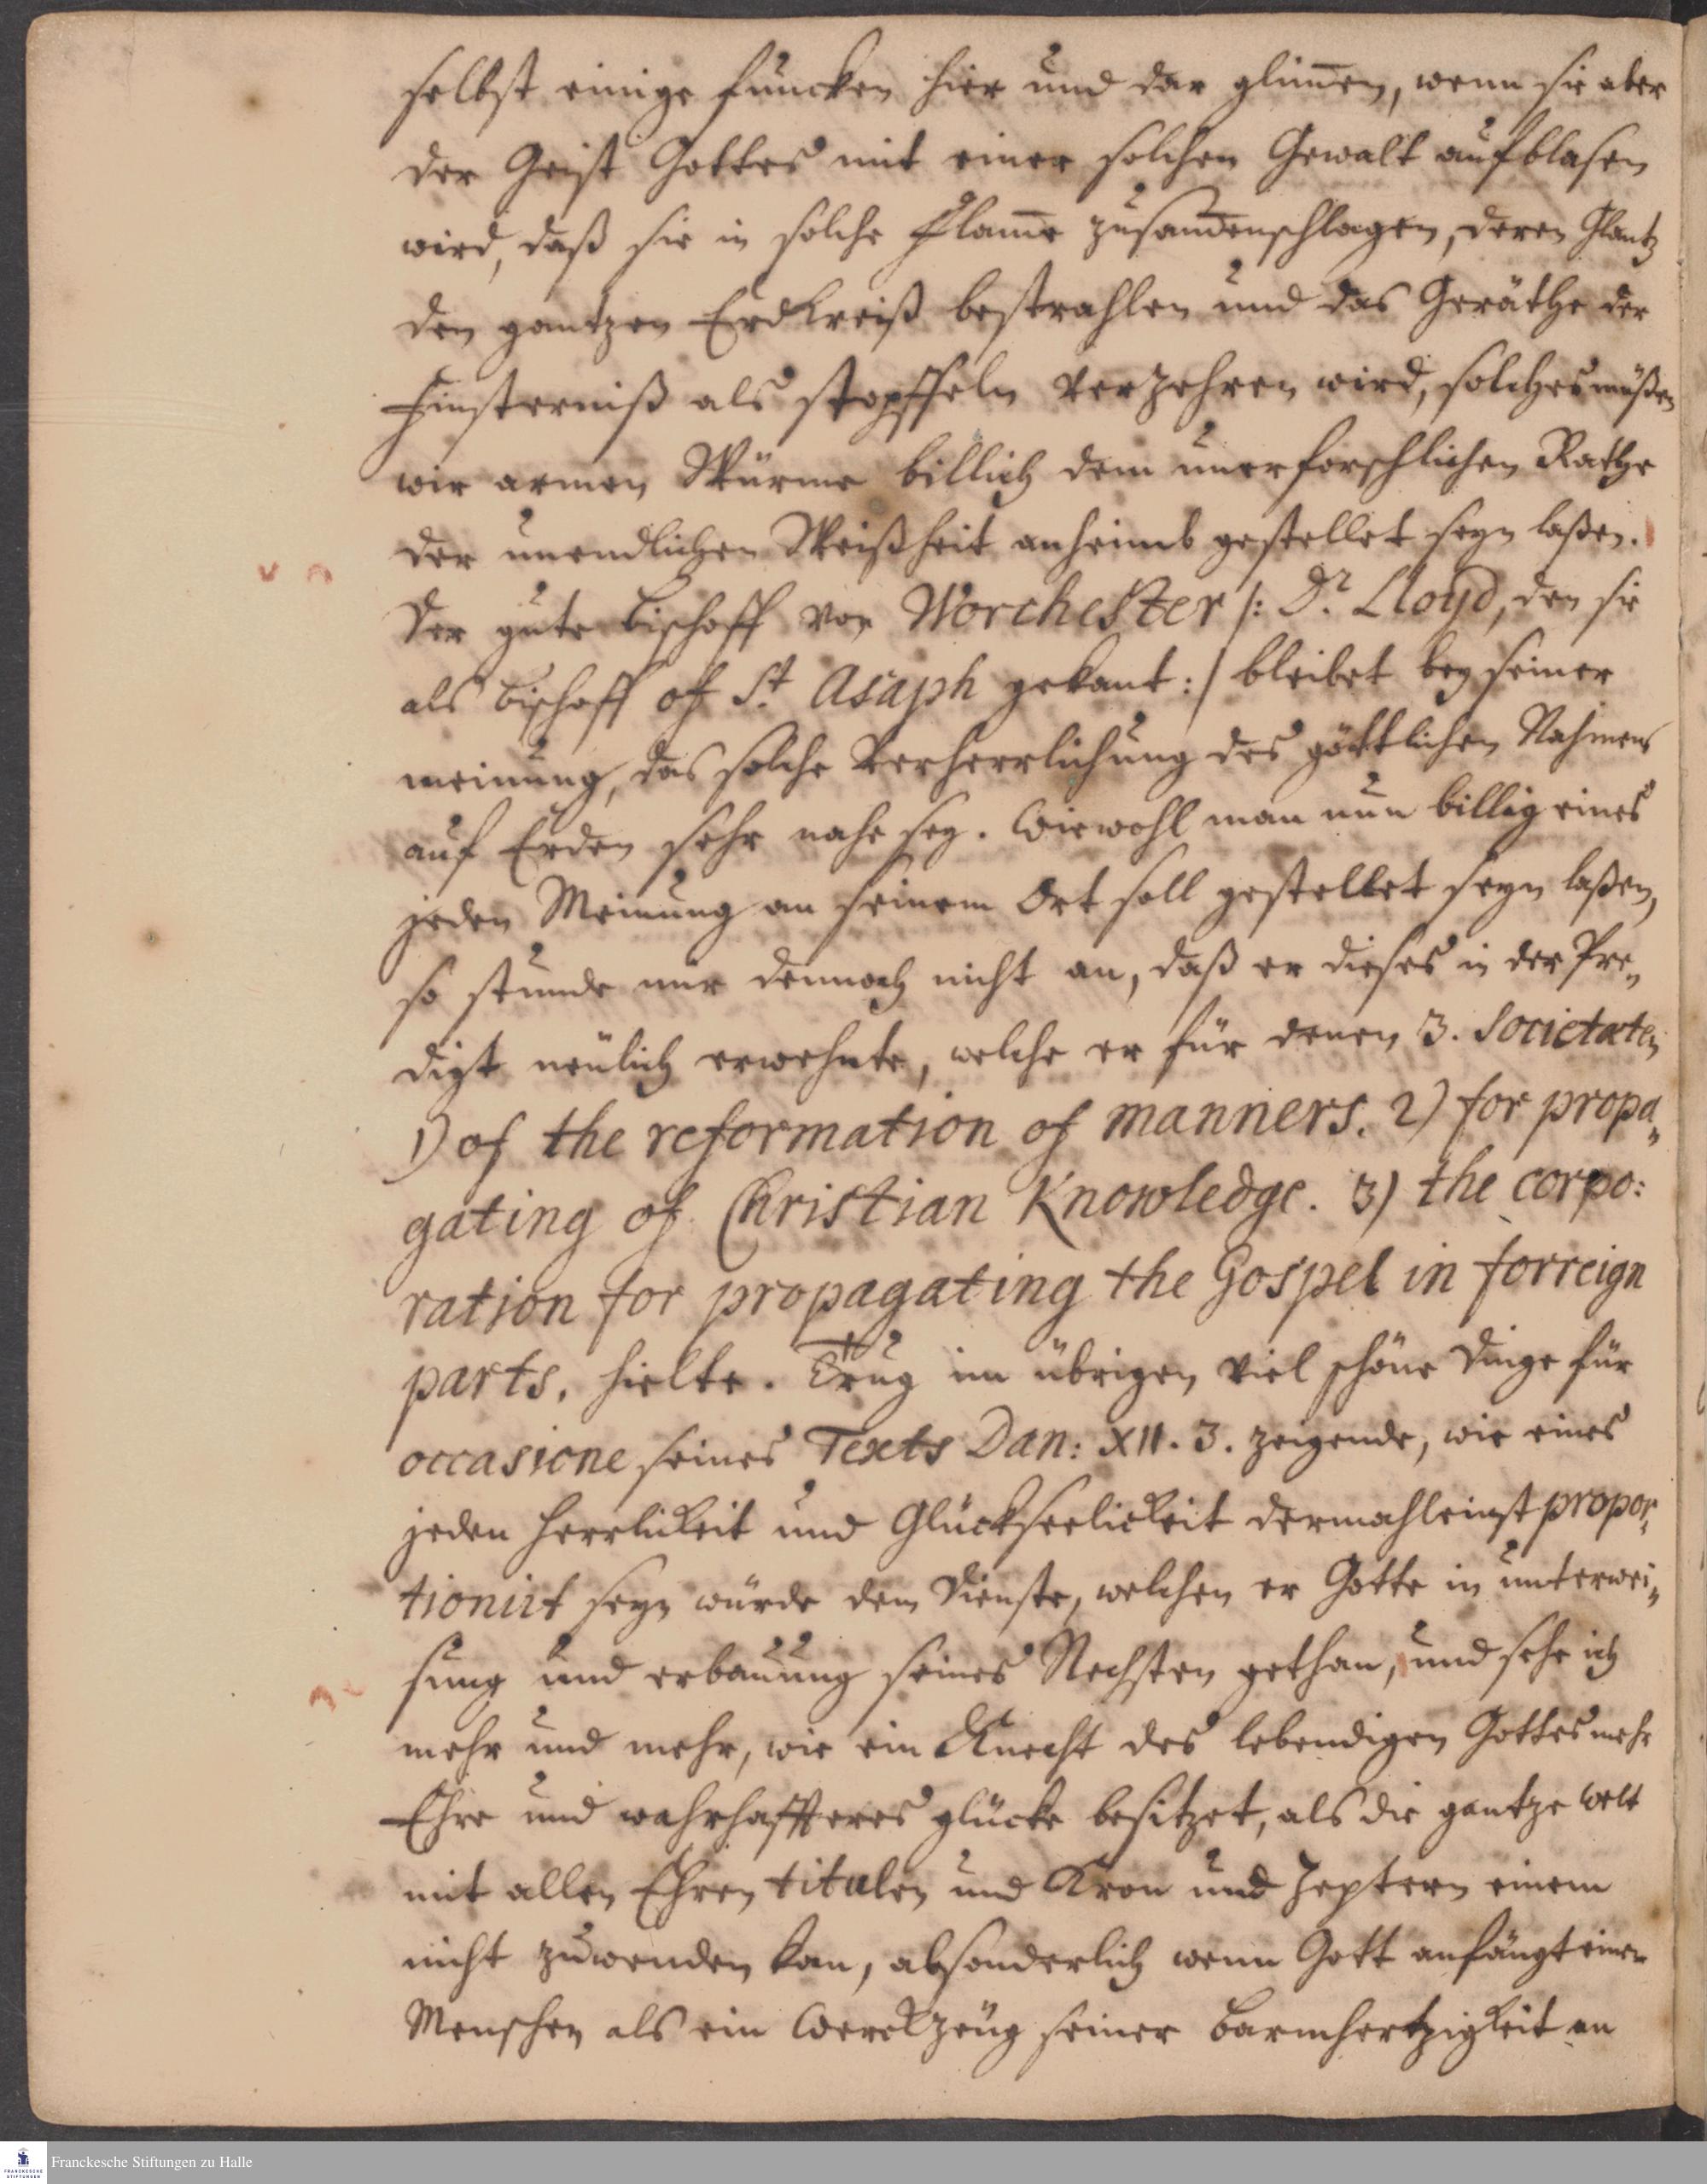 selbst einige funcken hier und dar glim̄en, wenn sie aber
der Geist Gottes mit einer solchen Gewalt aufblasen
wird, daß sie in solche Flam̄e zusam̄enschlagen, deren Glantz
den gantzen Erdkreiß bestrahlen und das Geräthe der
Finsterniß als stopffeln verzehren wird, solches müßen
wir armen Würme billich dem unerforschlichen Rathe
der unendlichen Weißheit anheimb gestellet seyn laßen.
Der gute Bischoff von Worchester /: Dr. Lloyd, den sie
als Bischoff of St. Asaph gekant :/ bleibet bey seiner
meinung, das solche Verherrlichung des göttlichen Nahmens
auf Erden sehr nahe sey. Wiewohl man nun billig eines
jeden Meinung an seinem Ort soll gestellet seyn laßen,
so stunde mir dennoch nicht an, daß er dieses in der Pre„
digt neulich erwehnte, welche er für denen 3. Societaten
1) of the reformation of manners. 2) for propa„
gating of Christian Knowledge. 3) the corpo:
ration for propagating the Gospel in forreign
parts, hielte. Trug im übrigen viel schöne Dinge für
occasione seines Texts Dan: XII. 3. zeigende, wie eines
jeden Herrlickeit und Glückseelickeit dermahleinst propor„
tionirt seyn würde dem Dienste, welchen er Gotte in unterwei„
sung und erbauung seines Nechsten gethan, und sehe ich
mehr und mehr, wie ein Knecht des lebendigen Gottes mehr
Ehre und wahrhaffteres glücke besitzet, als die gantze welt
mit allen Ehren titulen und Kron und Zeptern einem
nicht zuwenden kan, absonderlich wenn Gott anfängt einen
Menschen als ein Werckzeug seiner barmhertzigkeit an
Franckesche Stiftungen zu Halle